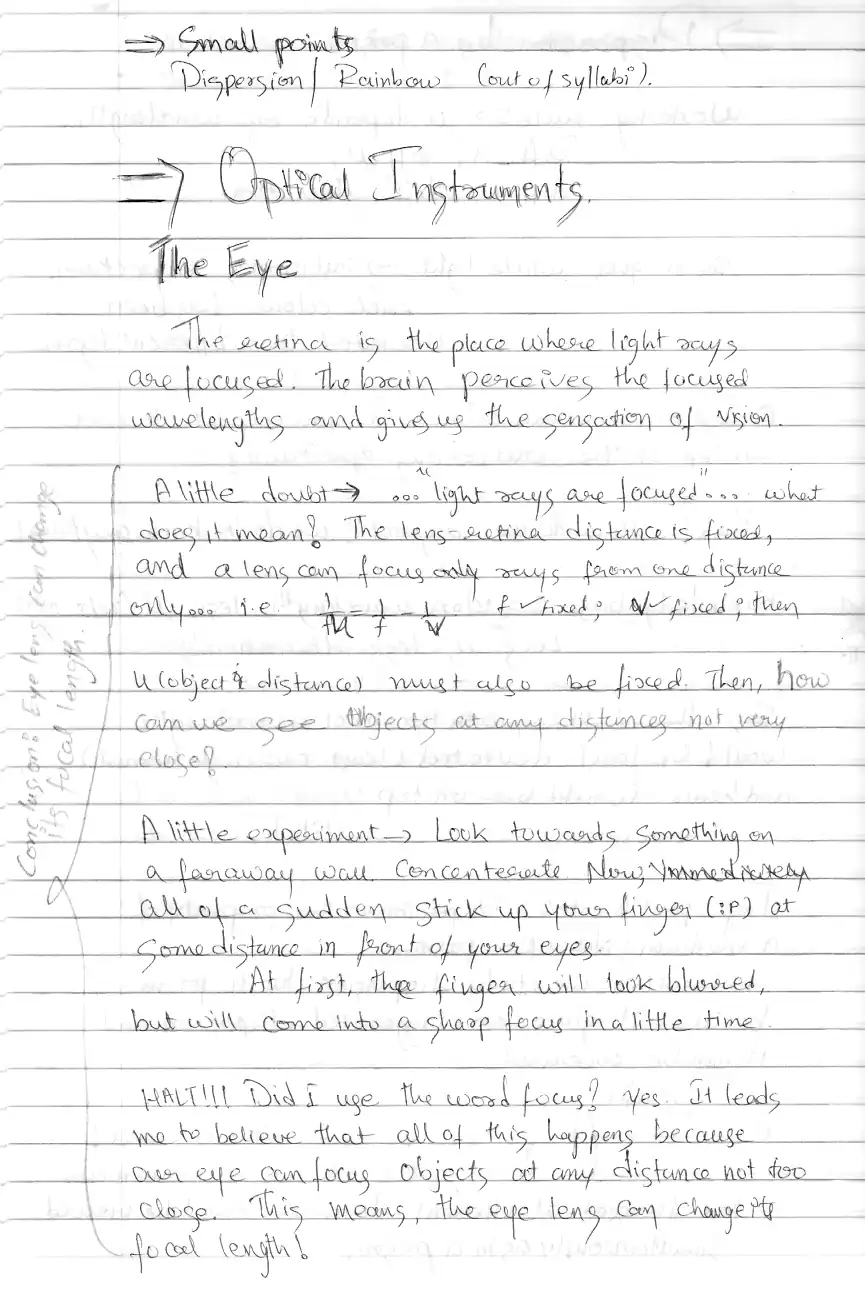 ⇒ Small points
Dispersion / Rainbow (out of syllabi).
⇒ Optical Instruments.
The Eye
The retina is the place where light rays
are focused. The brain perceives the focused
wavelengths and gives us the sensation of vision.
A little doubt → ... "light rays are focused"... what
does it mean? The lens-retina distance is fixed,
and a lens can focus only rays from one distance
only... i.e. 1/u = 1/f - 1/v f ✓ fixed; v ✓ fixed; then
u (object distance) must also be fixed. Then, how
can we see objects at any distances not very
close?
A little experiment → Look towards something on
a faraway wall. Concenterate. Now, immediately
all of a sudden stick up your finger (:P) at
some distance in front of your eyes.
At first, the finger will look blurred,
but will come into a sharp focus in a little time.
HALT!!! Did I use the word focus? Yes. It leads
me to believe that all of this happens because
our eye can focus objects at any distance not too
close. This means, the eye lens can change its
focal length!
Conclusion: Eye lens can change
its focal length.